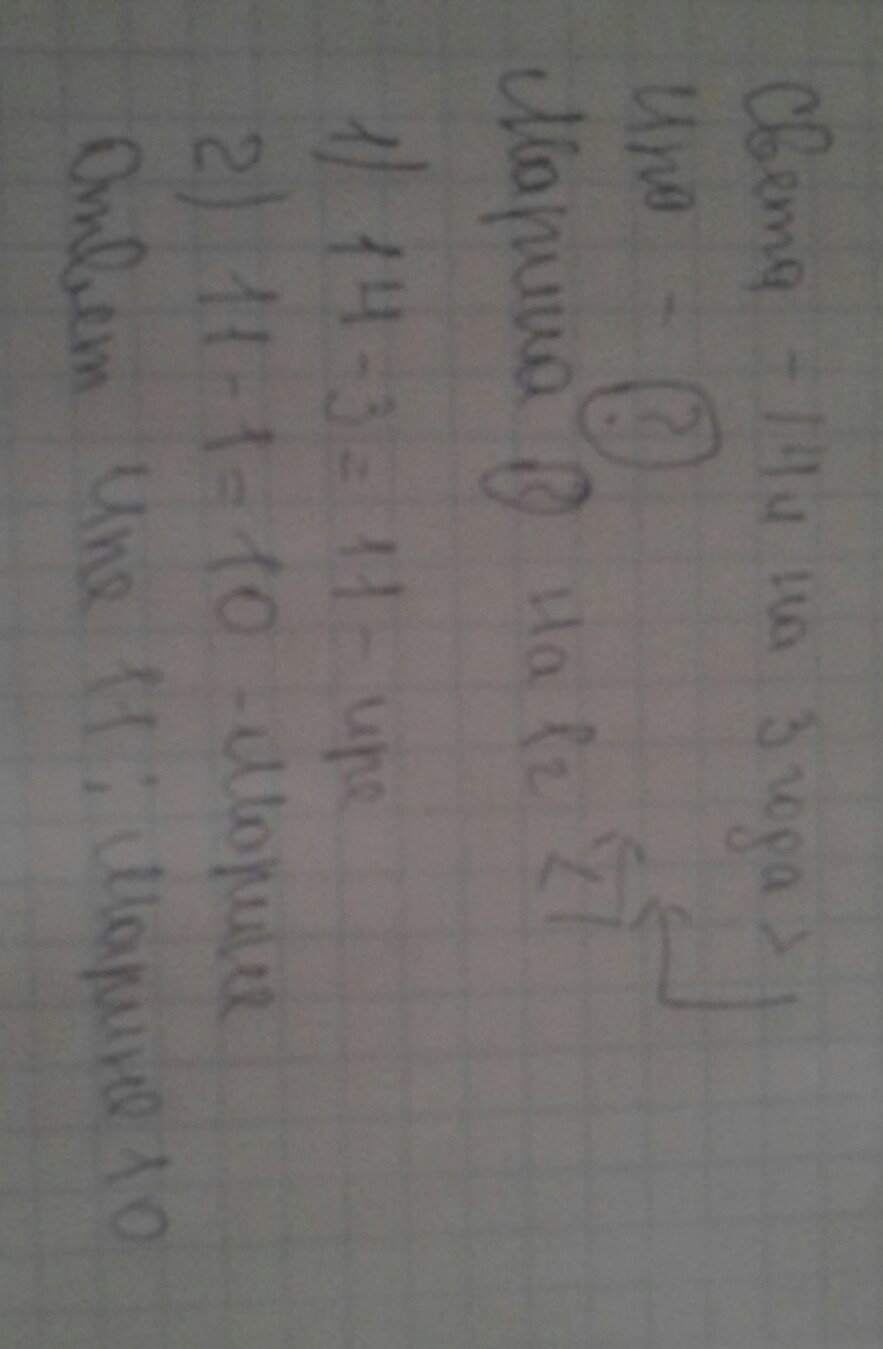 Света - 14 и на 3 года >
Ира - ?
Марина ? на 1г
1) 14-3=11- ире
2) 11-1=10 -Марине
Ответ ире 11; Марине 10